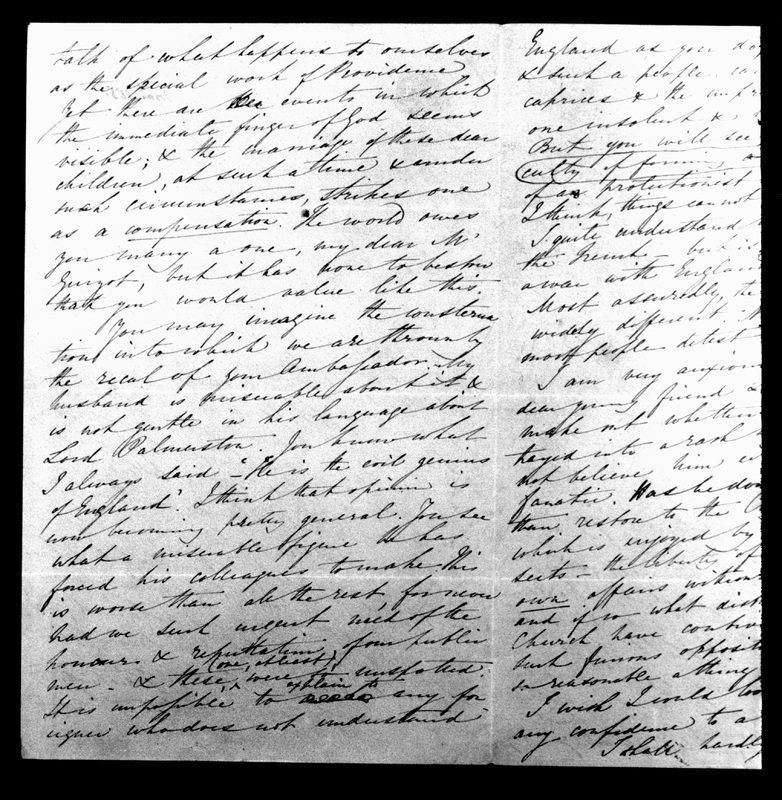 talk of what happens to ourselves
as the special work of Providence
Yet there are events in which
the immediate finger of God seems
visible; & the marriage of these dear
children, at such a time & under
such circumstances, strikes one
as a compensation. The world owes
you many a one, my dear Mr
Guizot, but it has none to bestow
that you would value like this.
You may imagine the consterna
tion into which we are thrown by
the recal of your Ambassador. My
husband is miserable about it &
is not gentle in his language about
Lord Palmerston. You know what
I always said - "He is the evil genius
of England". I think that opinion is
now becoming pretty general. You see
what a miserable figure he has
forced his colleagues to make. This
is worse than all the rest, for never
had we such urgent need of the
honour & reputation of our public
men - & these, (one, at least,) were unspotted.
It is impossible to explain to any for
eigner who does not understand
England as you do
& such a people ca
caprices & the
one insolent &
But you will see
culty of
of a protectionist
I think, things cannot
I quite understand
the French - but
a war with England
Most assuredly, the
widely different
most people detest
I am very anxious
dear young friend
make out whether
trayed into a rash
not believe him
fanatic. Has he don
than restore to the
which is enjoyed by
sects - the liberty of
own affairs without
and if so what
Church have
such furious opposit
so reasonable a thing
I wish I could
any confidence to a
I shall hardly